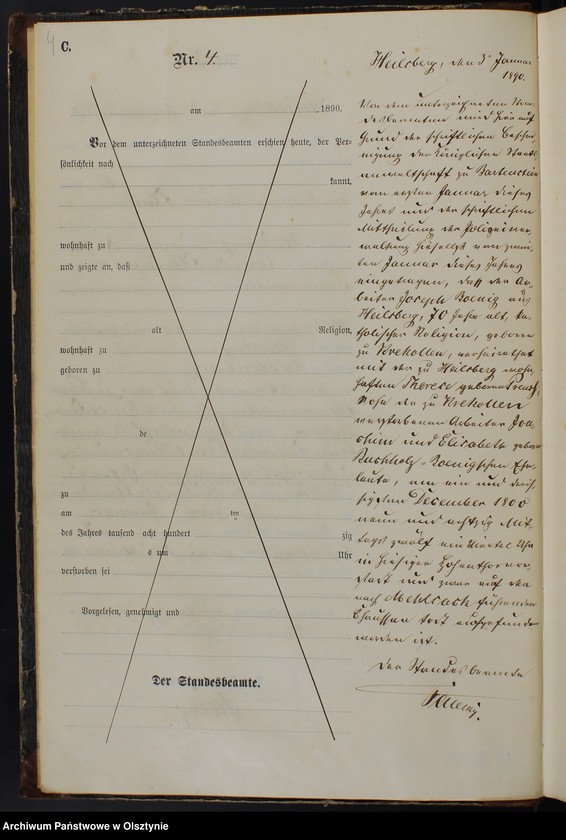 4
C.
Nr. 4.
am 1890.
Vor dem unterzeichneten Standesbeamten erschien heute, der Per-
sönlichkeit nach
kannt,
wohnhaft zu
und zeigte an, daß
alt Religion,
wohnhaft zu
geboren zu
de
zu
am ten
des Jahres tausend acht hundert zig
s um Uhr
verstorben sei
Vorgelesen, genehmigt und
Der Standesbeamte.
Heilsberg, den 3. Januar
1890.
Von dem unterzeichneten Stan-
desbeamten wird hier auf
Grund der schriftlichen Beschei-
nigung der Königlichen Staats-
anwaltschaft zu Bartenstein
vom ersten Januar dieses
Jahres und der schriftlichen
Mittheilung der Polizeiver-
waltung hieselbst vom zwei-
ten Januar dieses Jahres
eingetragen, daß der Ar-
beiter Joseph Koenig aus
Heilsberg, 70 Jahre alt, ka-
tholischer Religion, geboren
zu Krekollen, verheirathet
mit der zu Heilsberg wohn-
haften Therese geborene
Sohn der zu Krekollen
verstorbenen Arbeiter Joa-
chim und Elisabeth geborene
Buchholz-Koenigschen Ehe-
leute, am ein und dreis-
sigsten December 1800
neun und achtzig Mit-
tags zwölf ein Viertel Uhr
in hiesiger Hohenthorvor-
stadt und zwar auf der
nach führenden
Chaussee todt aufgefunden
worden ist.
Der Standesbeamte
Archiwum Państwowe w Olsztynie